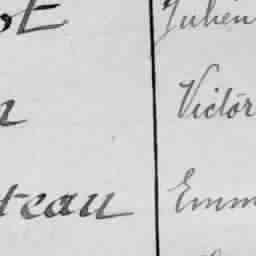 Julien
Victor
teau Emm